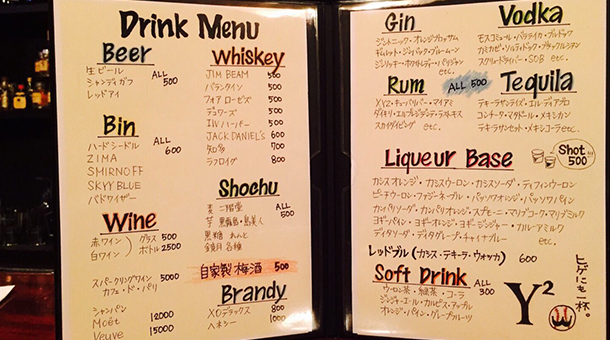 Drink Menu
Beer
生ビール
シャンディガフ
レッドアイ
ALL
500
Bin
ハードシードル
ZIMA
SMIRNOFF
SKYY BLUE
バドワイザー
ALL
600
Wine
赤ワイン
白ワイン
グラス 500
ボトル 2500
スパークリングワイン 5000
カフェ・ド・パリ
シャンパン
Moët 12000
Veuve 15000
Whiskey
JIM BEAM 500
バランタイン 500
フォア ローゼズ 500
デュワーズ 500
I.W ハーパー 500
JACK DANIEL'S 600
知多 700
ラフロイグ 800
Shochu
麦 二階堂
芋 黒霧島・島美人
黒糖 れんと
鏡月 各種
ALL
500
自家製 梅酒 500
Brandy
XOデラックス 800
ヘネシー 1000
Gin
ジントニック・オレンジブロッサム
ギムレット・ジンバック・ブルームーン
ジンリッキー・ホワイトレディー・パリジャン
etc.
Vodka
モスコミュール・バラライカ・ブルドッグ
カミカゼ・ソルティドッグ・ブラックルシアン
スクリュードライバー・SOB etc.
Rum
ALL 500
XYZ・キューバリバー・マイアミ
ダイキリ・エルプレジデンテ・ラストキス
スカイダイビング etc.
Tequila
テキーラサンライズ・エル・ディアブロ
コンチータ・マタドール・メキシカン
テキーラサンセット・メキシコーラ etc.
Liqueur Base
Shot
500
カシスオレンジ・カシスウーロン・カシスソーダ・ディフィウーロン
ピーチウーロン・ファジーネーブル・パッソアオレンジ・パッソアパイン
カンパリソーダ・カンパリオレンジ・スプモーニ・マリブコーク・マリブミルク
ヨギパイン・ヨギオレンジ・ヨギージンジャー・カルーアミルク
ディタソーダ・ディタグレープ・チャイナブルー
etc.
レッドブル (カシス・テキーラ・ウォッカ) 600
Soft Drink
ALL
300
ウーロン茶・緑茶・コーラ
ジンジャーエール・カルピス・アップル
オレンジ・パイン・グレープフルーツ
Y²
ヒゲにも一杯。